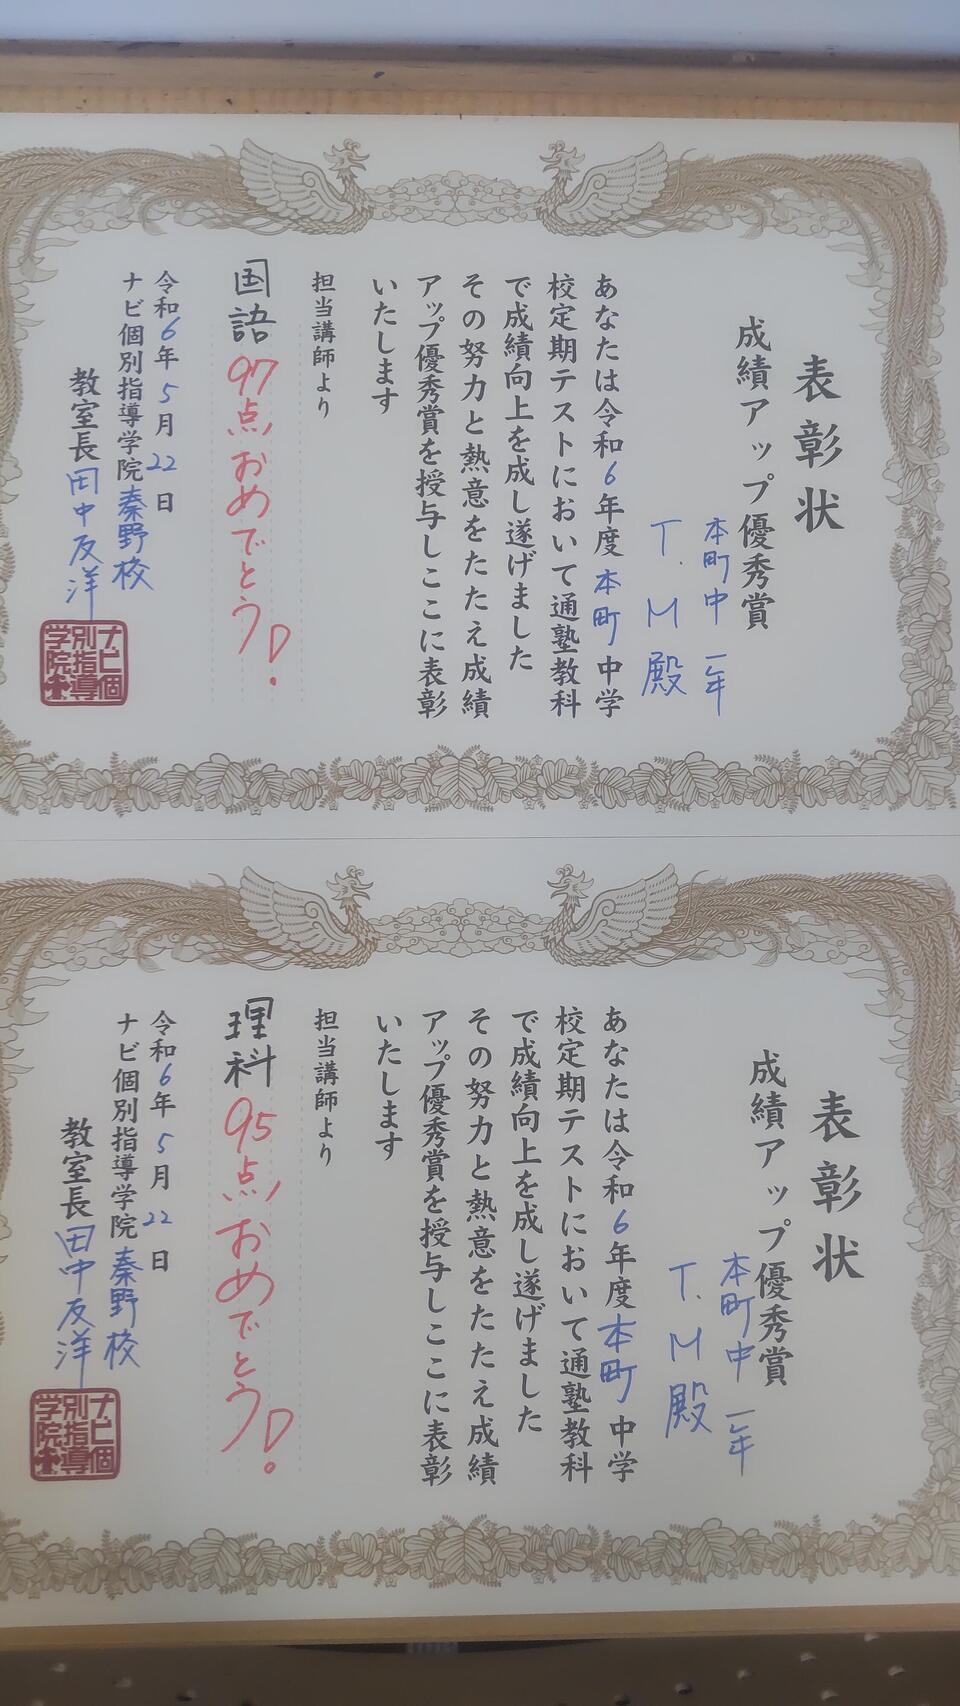 表彰状
成績アップ優秀賞
本町中 一年
T.M 殿
あなたは令和6年度本町中学
校定期テストにおいて通塾教科
で成績向上を成し遂げました
その努力と熱意をたたえ成績
アップ優秀賞を授与しここに表彰
いたします
担当講師より
国語 97点おめでとう!
令和6年5月22日
ナビ個別指導学院 秦野校
教室長 田中友洋
ナビ個
別指導
学院本
表彰状
成績アップ優秀賞
本町中 一年
T.M 殿
あなたは令和6年度本町中学
校定期テストにおいて通塾教科
で成績向上を成し遂げました
その努力と熱意をたたえ成績
アップ優秀賞を授与しここに表彰
いたします
担当講師より
理科 95点おめでとう!
令和6年5月22日
ナビ個別指導学院 秦野校
教室長 田中友洋
ナビ個
別指導
学院本